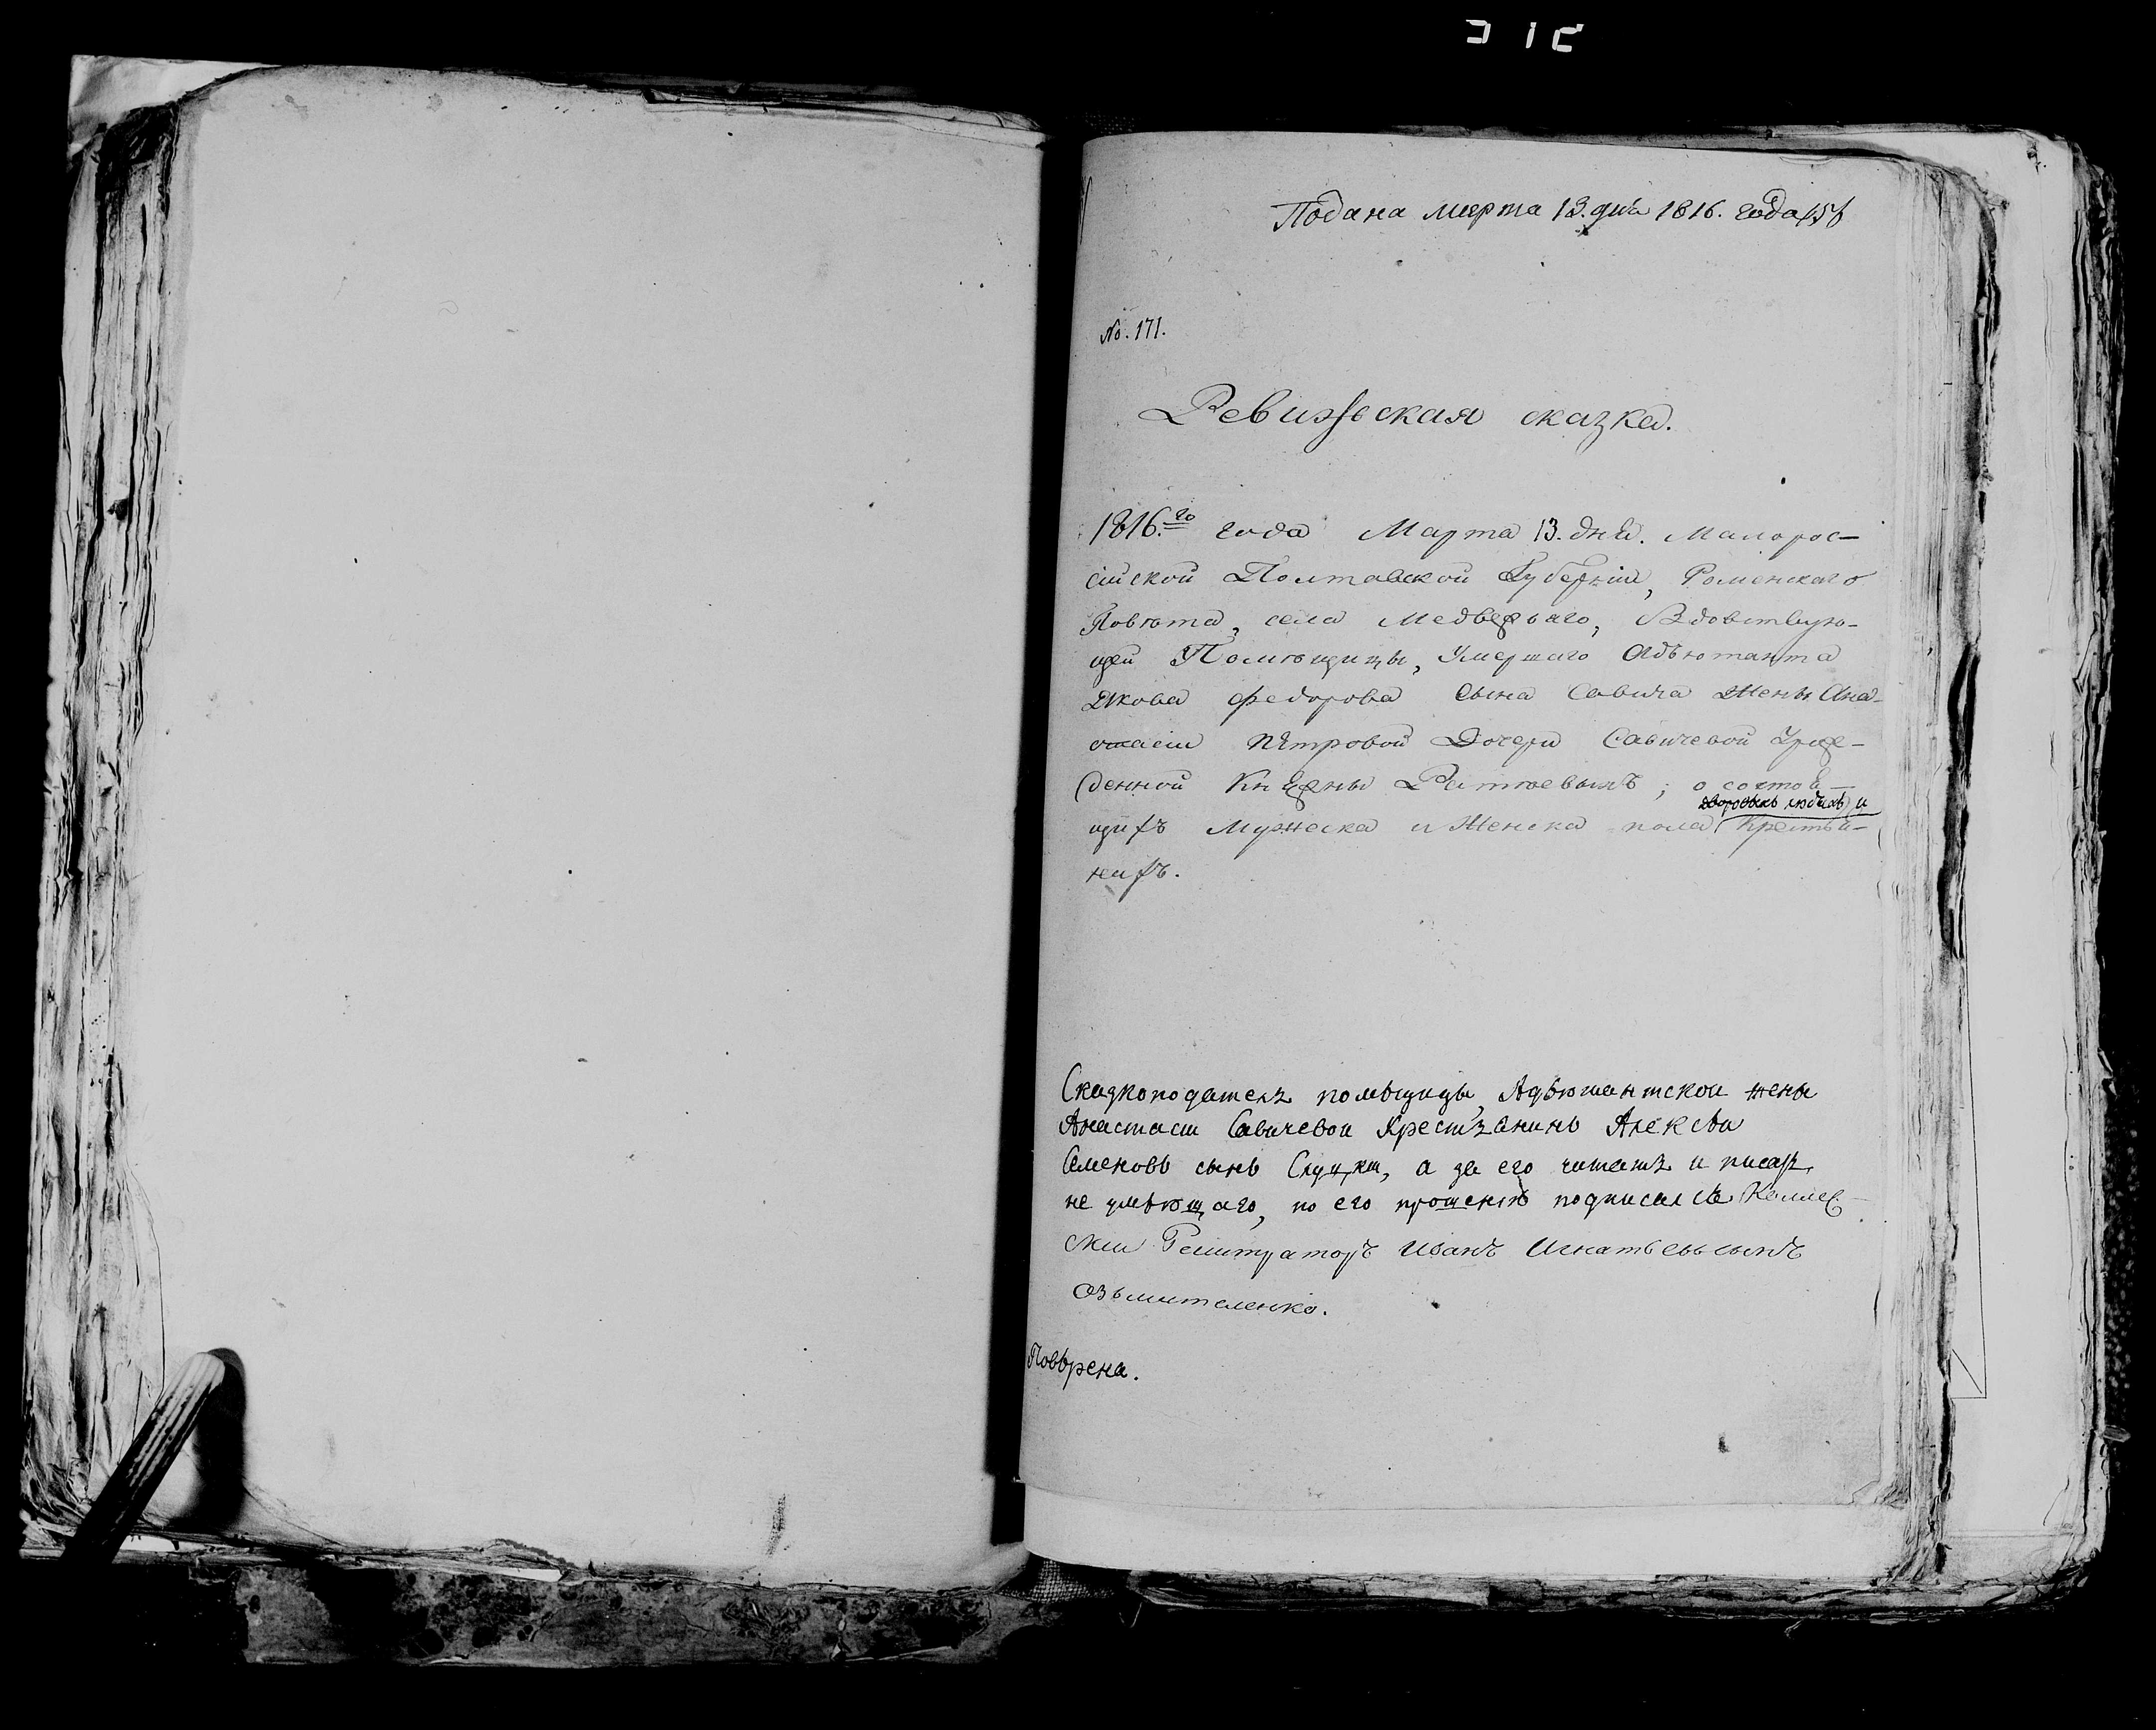 Подана марта 13. дня 1816. года
No. 171.
Ревизская сказка.
1816.го года Марта 13. дня. Малорос-
сійской Полтавской Губерніи, Роменскаго
Повѣта, села Медвежаго, Вдовствую-
щей Помѣщицы, Умершаго Адъютанта
Якова Федорова Сына Савича Жены Ана-
стасіи Петровой Дочери Савичевой Урож-
денной Княжны ; о состоя-
дворовыхъ людяхъ и
щихъ Мужеска и Женска пола Крестья-
нахъ.
Сказкоподатель помѣщицы Адъютантской жены
Анастасіи Савичевой Крестьянинъ Алексѣи
Семеновъ сынъ а за его читать и писать
не умѣющаго, по его прошенію подписался Коллеж-
ски Регистраторъ Иванъ Игнатьевъ сынъ
Повѣрена.